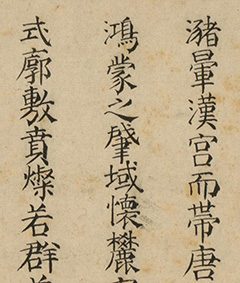 瀦暈漢宮而帶唐
鴻蒙之肇域懷
式廓敷賁燦若群